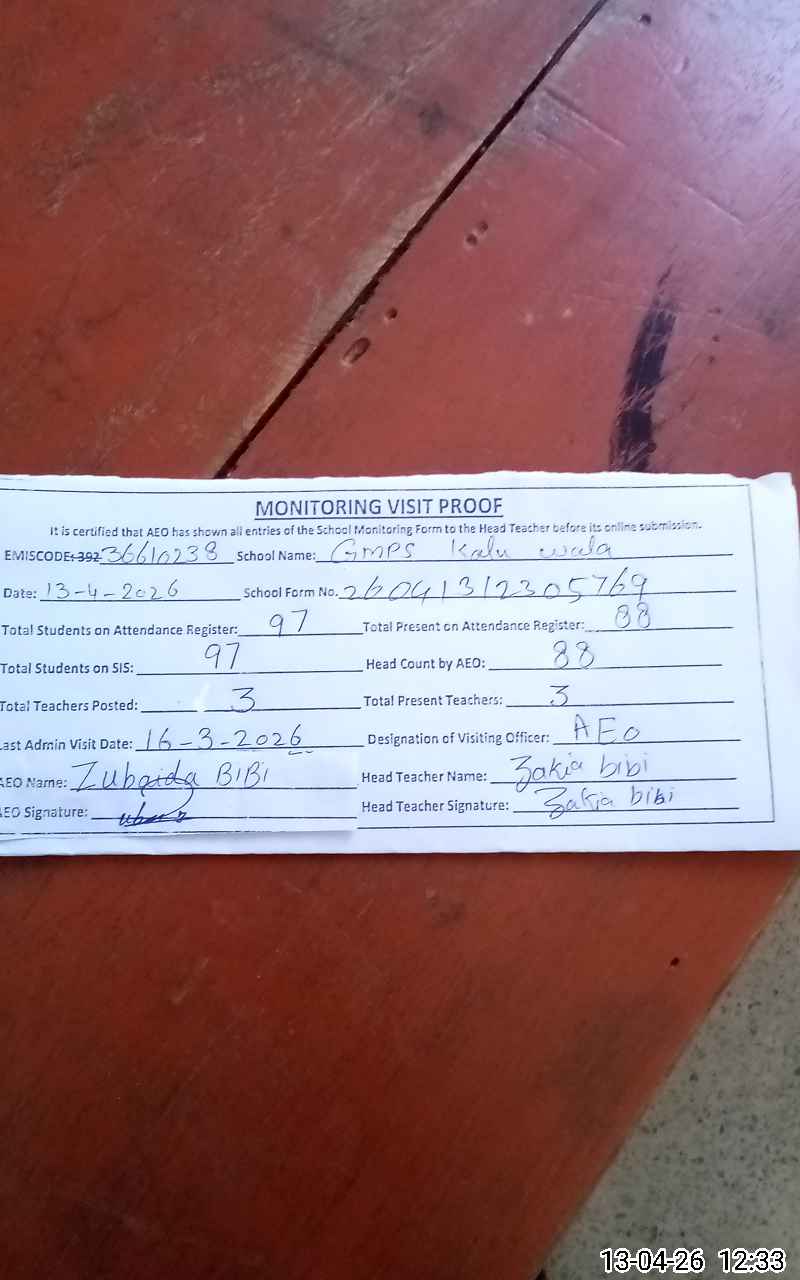 MONITORING VISIT PROOF
It is certified that AEO has shown all entries of the School Monitoring Form to the Head Teacher before its online submission.
EMISCODE: 392 36610238 School Name: GMPS Kalu wala
Date: 13-4-2026 School Form No. 26041312305769
Total Students on Attendance Register: 97 Total Present on Attendance Register: 88
Total Students on SIS: 97 Head Count by AEO: 88
Total Teachers Posted: 3 Total Present Teachers: 3
Last Admin Visit Date: 16-3-2026 Designation of Visiting Officer: AEO
AEO Name: Zubaida BiBi Head Teacher Name: Zakia bibi
AEO Signature: Head Teacher Signature: Zakia bibi
13-04-26 12:33